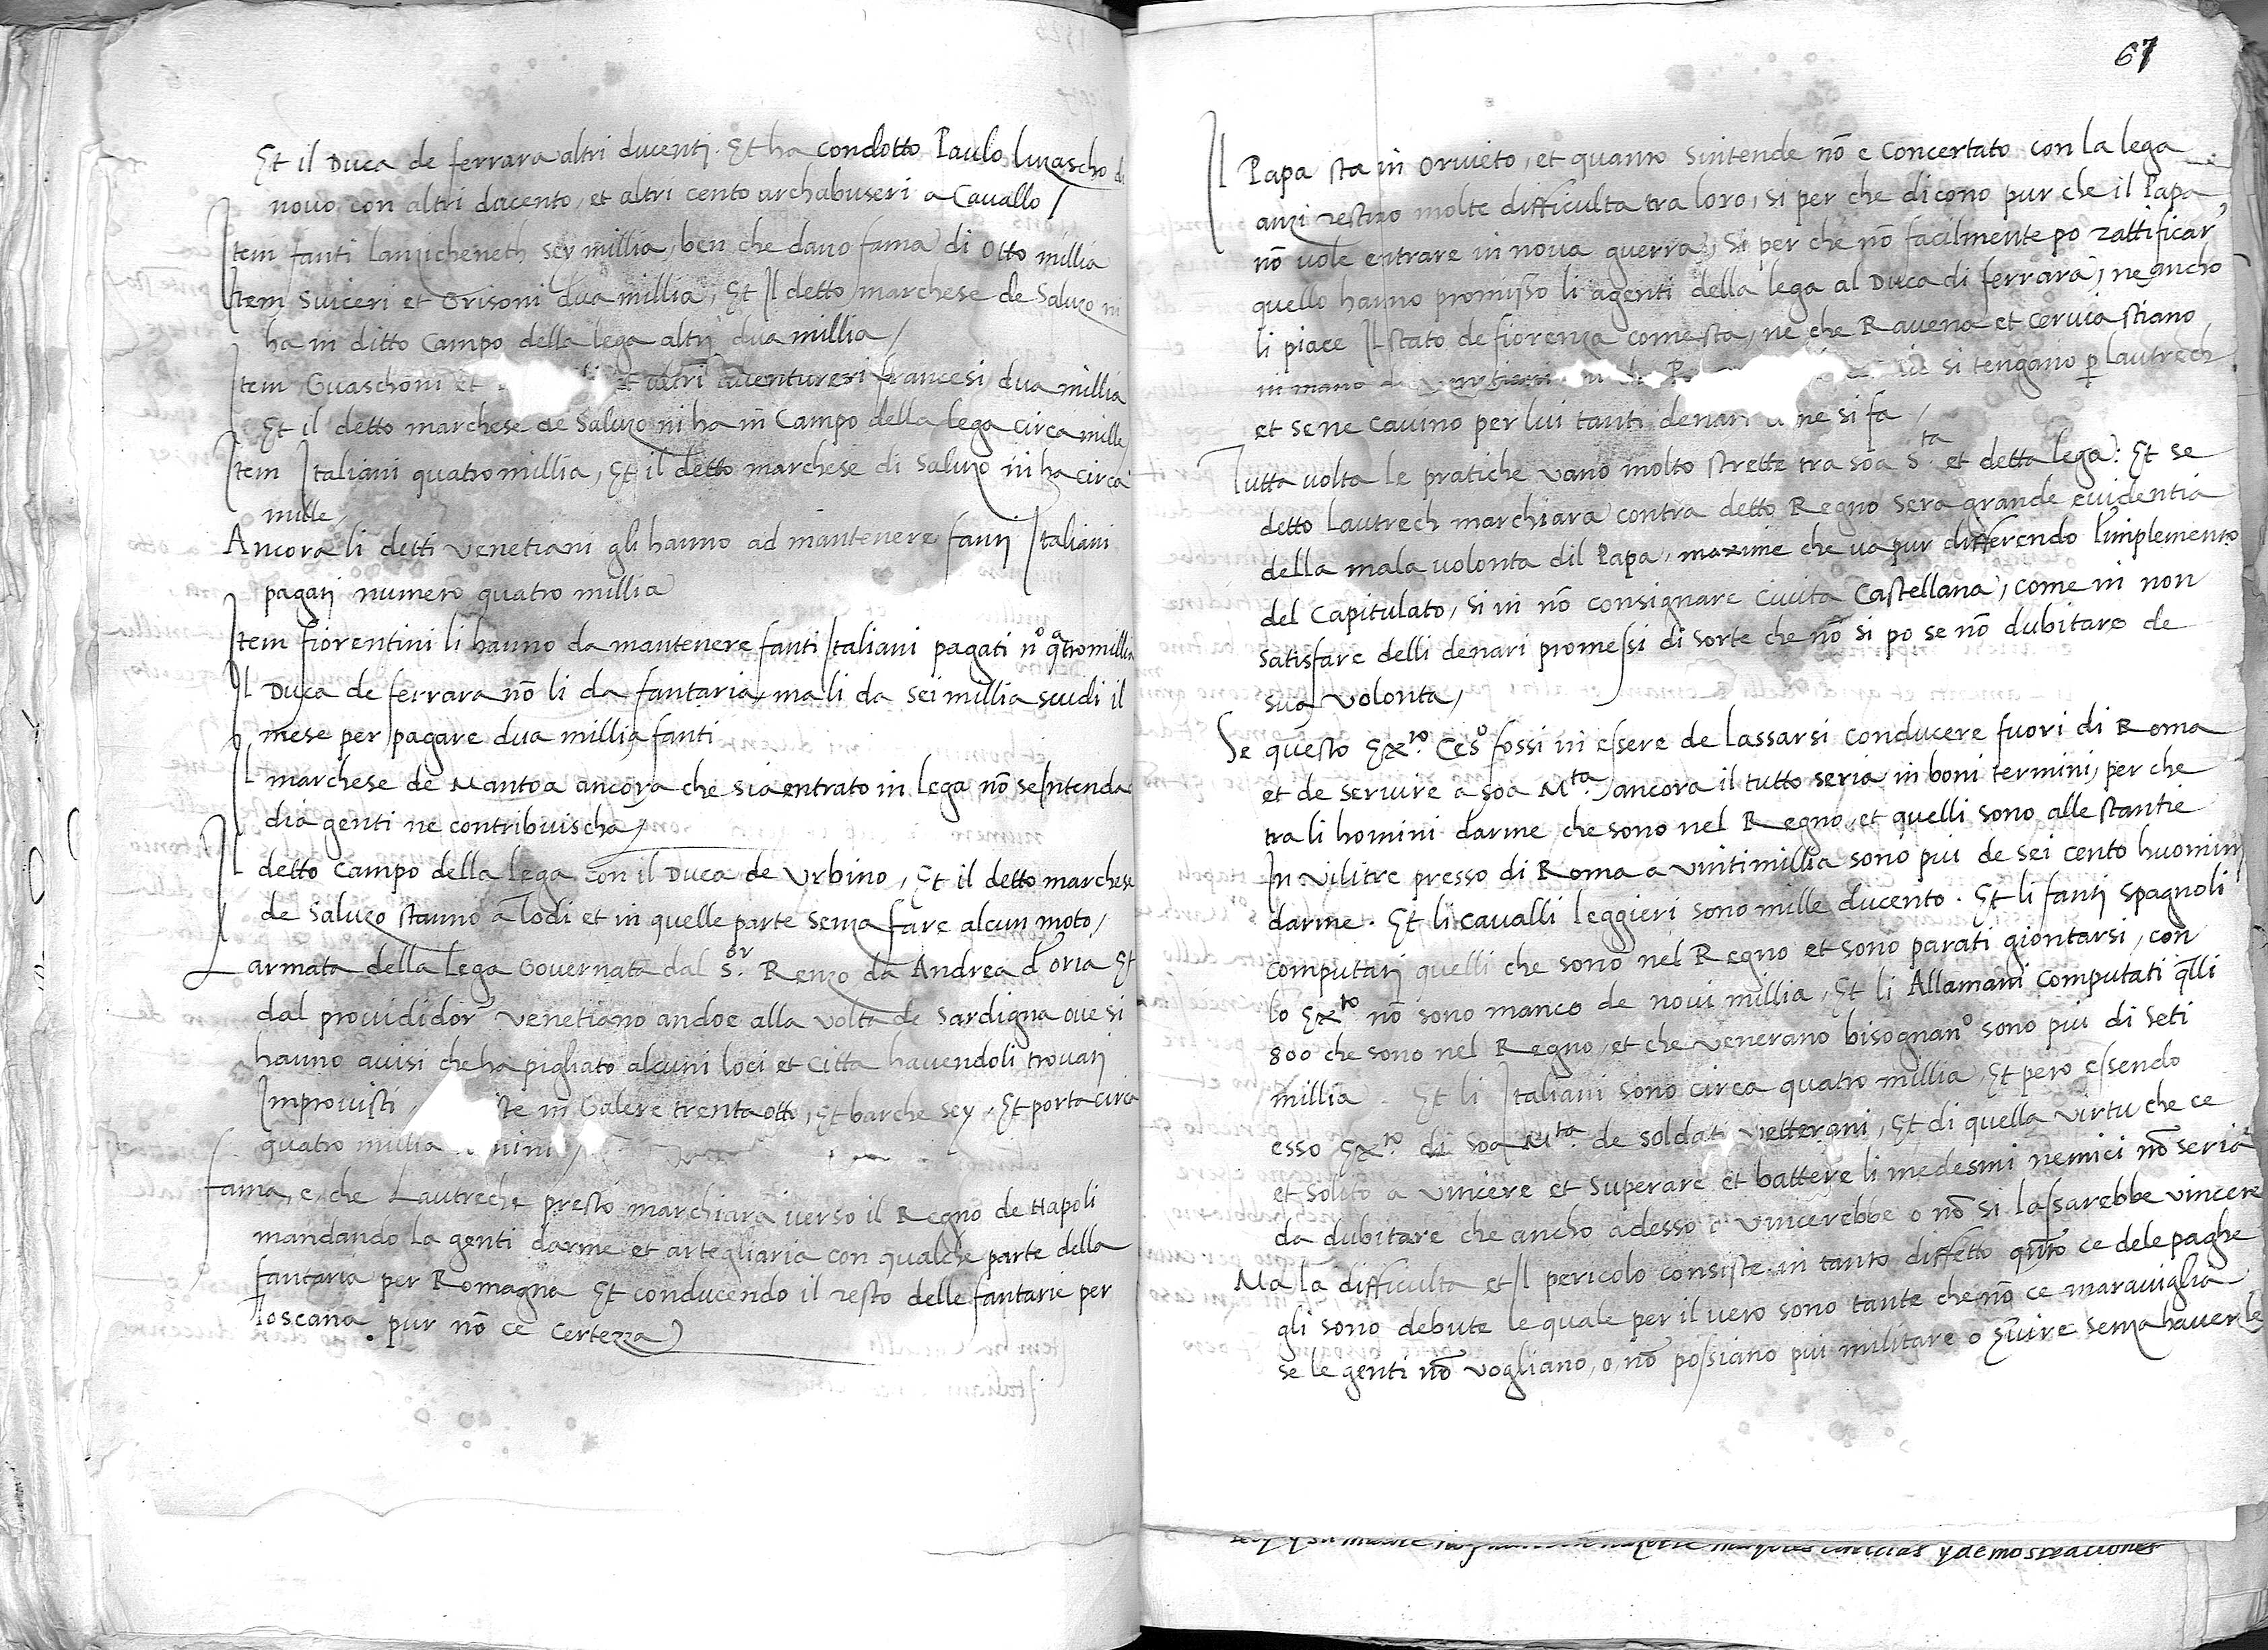 Et il Duca de ferrara altri ducenti. Et ha condotto Paulo luzascho di
novo con altri ducento, et altri cento archabuseri a Cavallo /
Item fanti lanzicheneth sey millia, ben che dano fama di otto millia
Item Suiceri et Grisoni dua millia, Et Il detto marchese de Saluzo ni
ha in ditto Campo della lega altrj dua millia /
Item Guaschoni et altri aventureri francesi dua millia
Et il detto marchese de Saluzo ni ha in Campo della lega circa mille /
Item Italiani quatro millia, Et il detto marchese di Saluzo ni ha circa
mille /
Ancora li detti venetiani gli hanno ad mantenere fanti Italiani
pagati numero quatro millia
Item fiorentini li hanno da mantenere fanti Italiani pagati nº qtromillia
Il Duca de ferrara nõ li da fantaria, ma li da sei millia scudi il
mese per pagare dua millia fanti
Il marchese de Mantoa ancora che sia entrato in lega nõ se Intenda
dia genti ne contribuischa /
Il detto Campo della lega con il Duca de Urbino, Et il detto marchese
de Saluzo stanno a lodi et in quelle parte senza fare alcun moto /
L armata della lega Governata dal S.or Renzo da Andrea d oria Et
dal provididor venetiano andoe alla volta de Sardigna ove si
hanno avisi che ha pigliato alcuni loci et Citta havendoli trovati
Improvisti, in Galere trenta otto, Et barche sey, Et porta circa
quatro millia
fama e che Lautreche presto marchiara verso il Regno de Napoli
mandando la genti darme et artegliaria con qualche parte della
fantaria per Romagna Et conducendo il resto delle fantarie per
Toscana pur nõ ce Certezza
67
Il Papa sta in Orvieto, et quanto sintende nõ e Concertato con la lega
anzi restano molte difficulta tra loro, si per che dicono pur che il Papa
nõ vole entrare in nova guerra, Si per che nõ facilmente po rattificar
quello hanno promisso li agenti della lega al Duca di ferrara, ne ancho
li piace Il stato de fiorenza come sta, ne che Ravena et Cervia stiano
in mano si tengano p lautrech
et se ne cavino per lui tanti denari ne si fa /
Tutta volta le pratiche vano molto strette tra soa S.ta et detta lega: Et se
detto Lautrech marchiara contra detto Regno sera grande evidentia
della mala volonta dil Papa, maxime che va pur differendo l'implemento
del Capitulato, si in nõ consignare Civita Castellana, come in non
satisfare delli denari promessi di sorte che nõ si po se nõ dubitare de
sua volonta /
Se questo Ex.to Ces.o fossi in essere de lassarsi conducere fuori di Roma
et de servire a soa M.ta, ancora il tutto seria in boni termini, per che
tra li homini darme che sono nel Regno, et quelli sono alle stantie
In Vilitre presso di Roma a vintimillia sono piu de sei cento huomini
darme. Et li cavalli leggieri sono mille ducento. Et li fanti spagnoli
Computati quelli che sono nel Regno et sono parati giontarsi, con
lo Ex.to nõ sono manco de novi millia, Et li Allamani Computati qlli
800 che sono nel Regno, et che venerano bisognanº sono piu di seti
millia. Et li Italiani sono circa quatro millia, Et pero essendo
esso Ex.to di soa M.ta de soldati vetterani, Et di quella virtu che ce
et solito a vincere et superare et battere li medesmi nemici nõ seria
da dubitare che ancho adesso e vincerebbe o nõ si lassarebbe vincere
Ma la difficulta et Il pericolo consiste in tanto diffetto qnto ce dele paghe
gli sono debute le quale per il vero sono tante che nõ ce maraviglia
se le genti nõ vogliano, o nõ possiano piu militare o svire senza haverle